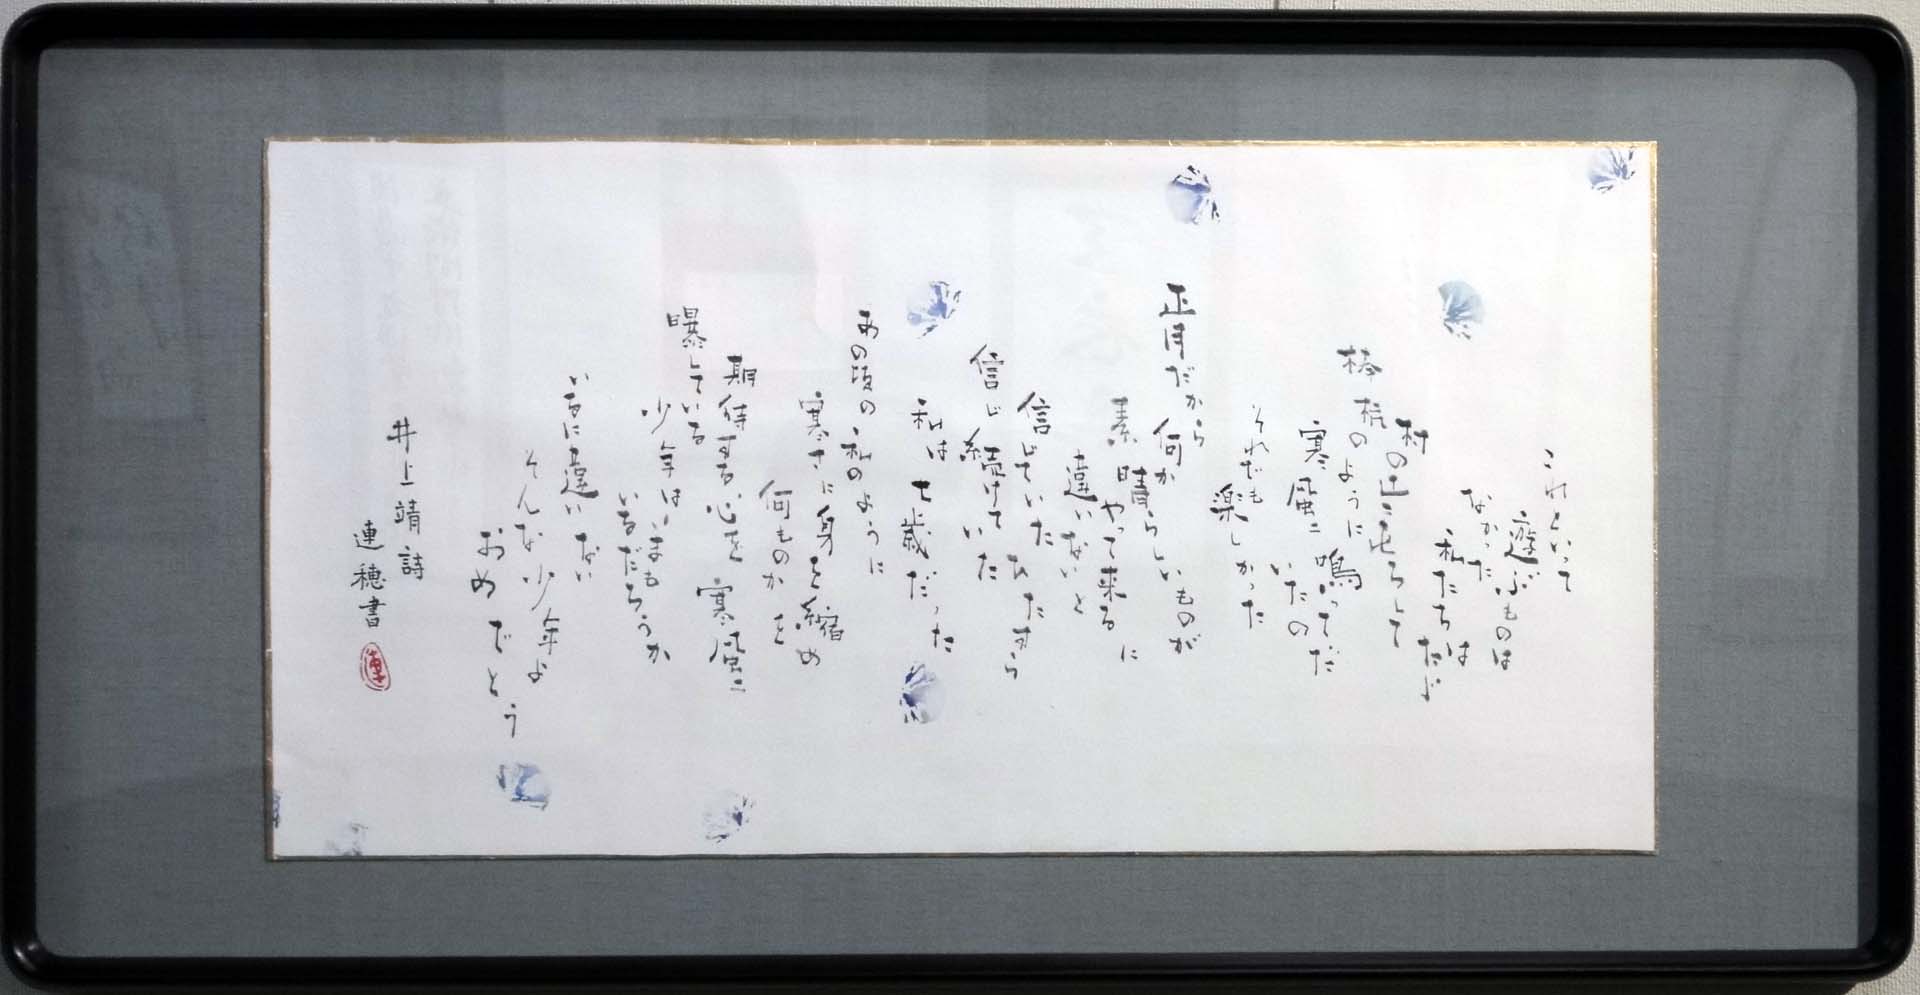 これといって
遊ぶものは
なかった
私たちは
たゞ
村の辻ニ屯ろして
棒杭のように
寒風ニ鳴って
いたのだ
それでも
楽しかった
正月だから
何か
素晴らしいものが
やって来るに
違いないと
信じていた ひたすら
信じ続けて
いた
私は七歳だった
あの頃の私のように
寒さに身を縮め
何ものかを
期待する心を寒風ニ
曝している
少年はいまも
いるだろうか
いるに違いない
そんな少年よ
おめでとう
井上靖詩
連穂書